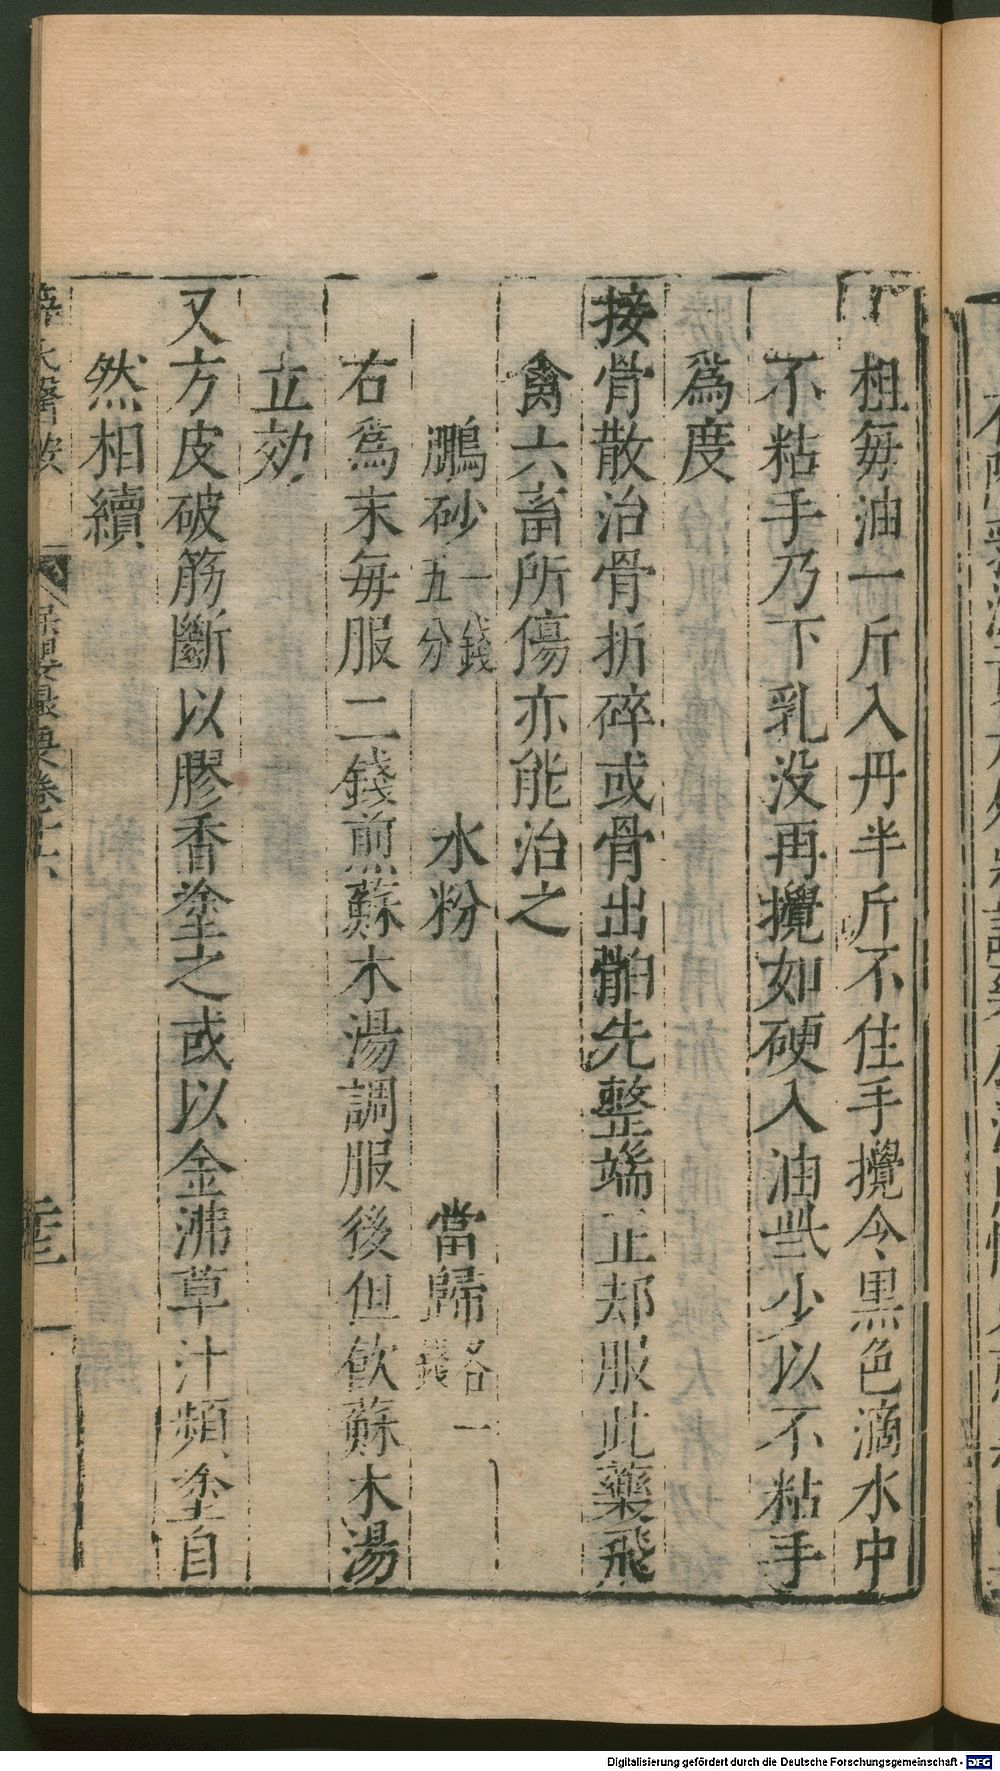 柤每油一斤入丹半斤不住手攪令黒色滴水中
不粘手乃下乳没再攪如硬入油些少以不粘手
爲度
接骨散治骨折碎或骨出骱先整端正却服此藥飛
禽六畜所傷亦能治之
鵬砂一錢五分 水粉 當歸各一錢
右爲末每服二錢煎蘇木湯調服後但飲蘇木湯
立効
又方皮破筋斷以膠香塗之或以金沸草汁頻塗自
然相續
薛氏醫按 保嬰撮要卷十六 二十三
Digitalisierung gefördert durch die Deutsche Forschungsgemeinschaft - DFG